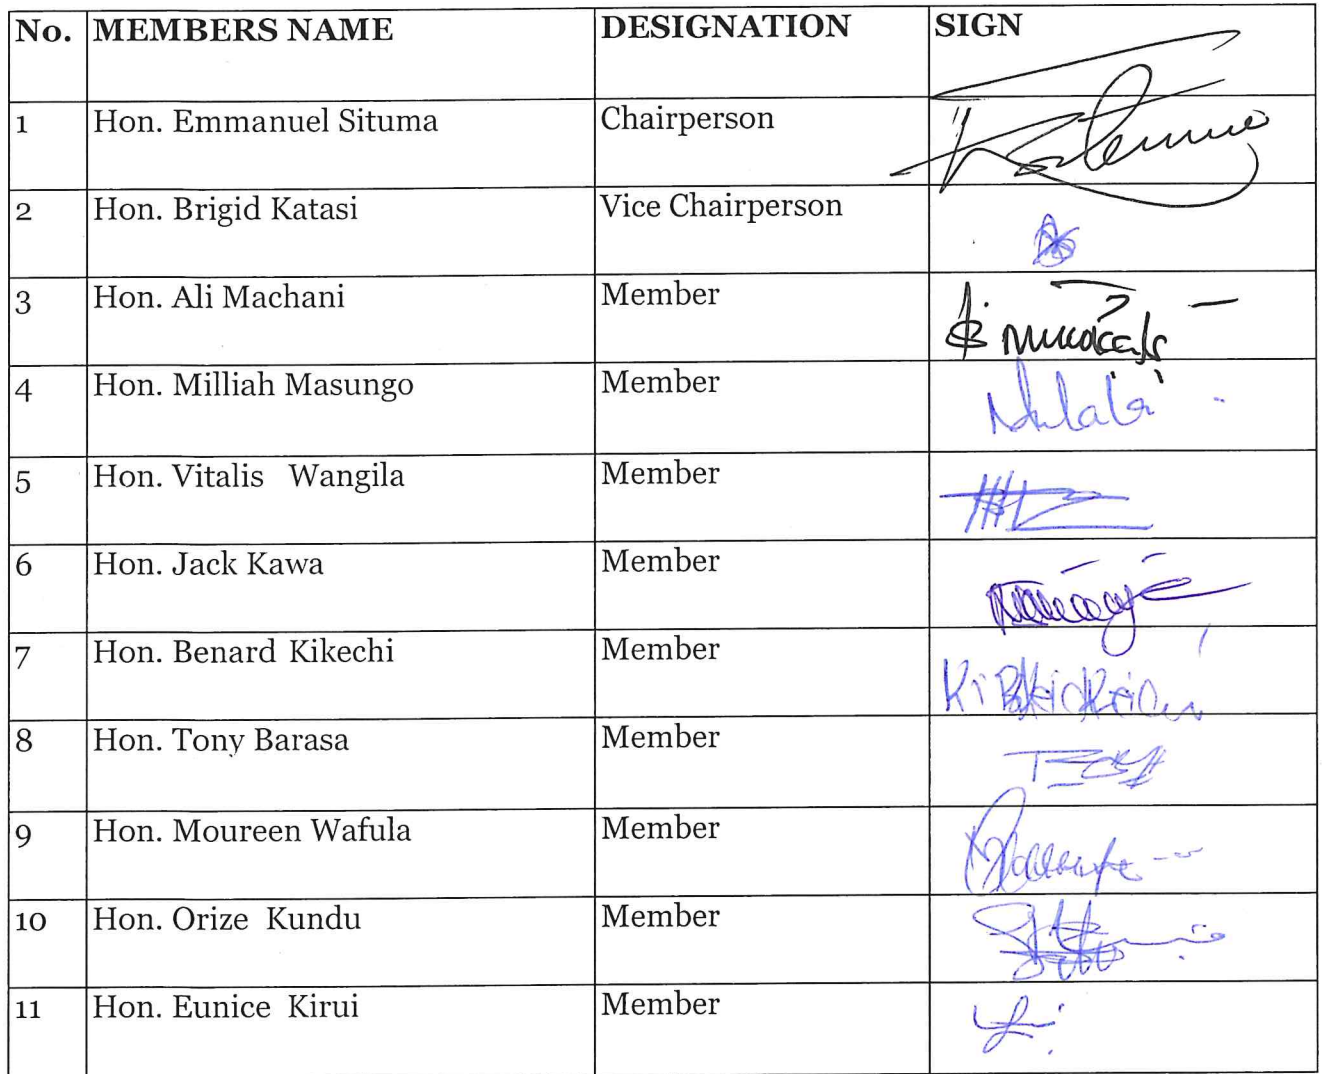 No. MEMBERS NAME DESIGNATION SIGN
1 Hon. Emmanuel Situma Chairperson
2 Hon. Brigid Katasi Vice Chairperson
3 Hon. Ali Machani Member
4 Hon. Milliah Masungo Member
5 Hon. Vitalis Wangila Member
6 Hon. Jack Kawa Member
7 Hon. Benard Kikechi Member
8 Hon. Tony Barasa Member
9 Hon. Moureen Wafula Member
10 Hon. Orize Kundu Member
11 Hon. Eunice Kirui Member